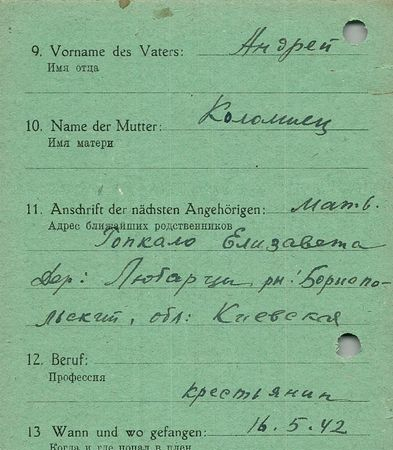 9. Vorname des Vaters: Андрей
Имя отца
10. Name der Mutter: Коломиец
Имя матери
11. Anschrift der nächsten Angehörigen: мать.
Адрес ближайших родственников
Гопкало Елизавета
Дер: Любарци рн: Бориспо-
льский, обл: Киевская
12. Beruf:
Профессия
крестьянин
16.5.42
13 Wann und wo gefangen:
Когда и где попал в плен